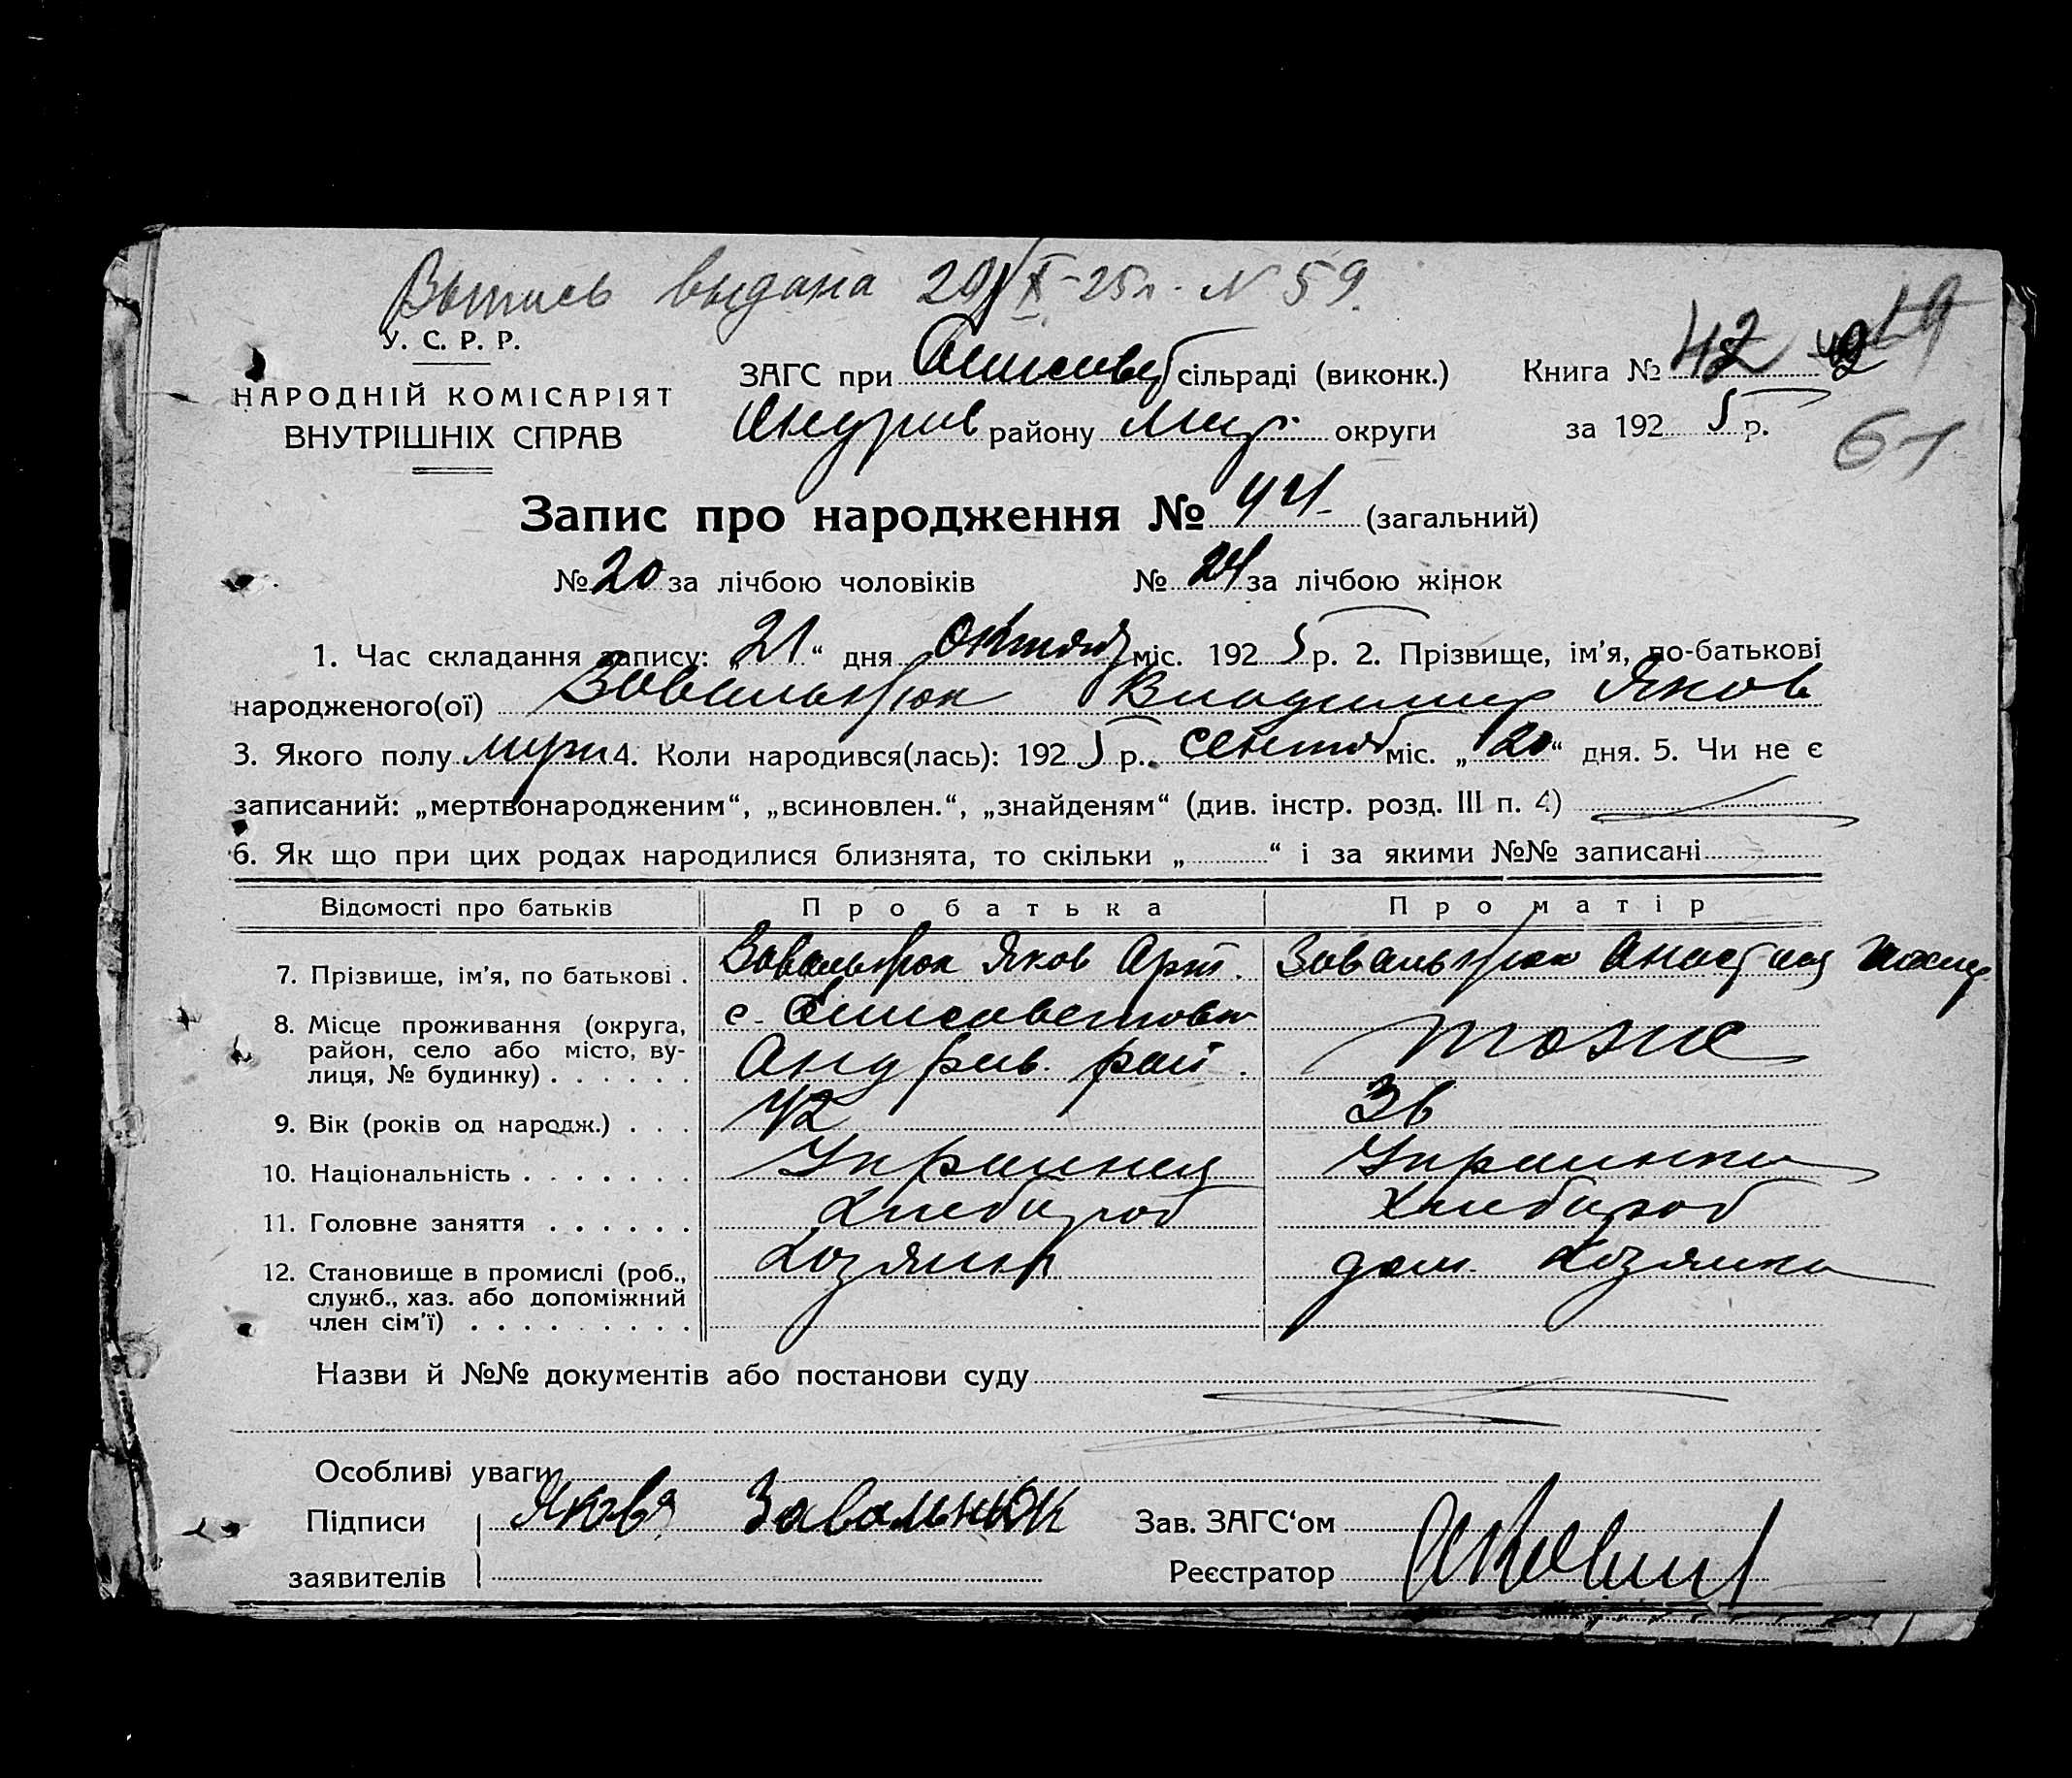 Выпись выдана 29/X-25г. N 59.
У. С. Р. Р.
НАРОДНІЙ КОМІСАРІЯТ
ВНУТРІШНІХ СПРАВ
ЗАГС при Елисавет сільраді (виконк.)
Андрив району Мар. округи
Книга № 42
за 1925 р.
61
Запис про народження № 44 (загальний)
№ 20 за лічбою чоловіків № 24 за лічбою жінок
1. Час складання запису: „21“ дня октяб міс. 1925 р. 2. Прізвище, ім’я, по-батькові
народженого(ої) Завальнюк Владимир Яков
3. Якого полу муж 4. Коли народився(лась): 1925 р. сентяб міс. „20“ дня. 5. Чи не є
записаний: „мертвонародженим“, „всиновлен.“, „знайденям“ (див. інстр. розд. III п. 4)
6. Як що при цих родах народилися близнята, то скільки „ “ і за якими №№ записані
Відомості про батьків Про батька Про матір
7. Прізвище, ім’я, по батькові . Завальнюк Яков Арт. Завальнюк Анастасия
8. Місце проживання (округа, с. Елисаветовка
район, село або місто, ву- Андрив. рай. тоже
лиця, № будинку) . . . . . .
9. Вік (років од народж.) . . . 42 36
10. Національність . . . . . . . Украинец Украинка
11. Головне заняття . . . . . . Хлебороб Хлебороб
12. Становище в промислі (роб., Хозяин дом. Хозяйка
служб., хаз. або допоміжний
член сім’ї) . . . . . . . . .
Назви й №№ документів або постанови суду
Особливі уваги
Підписи Яков Завальнюк Зав. ЗАГС‘ом
заявителів Реєстратор